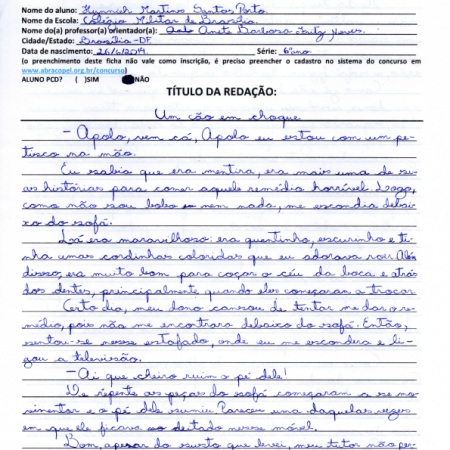 Nome do aluno: Hyannah Martins Santos Porto
Nome da Escola: Colégio Militar de Brasília
Nome do(a) professor(a) orientador(a): Anete Barbosa
Cidade/Estado: Brasília - DF
Data de nascimento: 26/6/2014. Série: 6º ano
(o preenchimento deste ficha não vale como inscrição, é preciso preencher o cadastro no sistema do concurso em
www.abracopel.org.br/concurso)
ALUNO PCD? ( )SIM NÃO
TÍTULO DA REDAÇÃO:
Um cão em choque
- Apolo, vem cá, Apolo eu estou com um pe-
tisco na mão.
Eu sabia que era mentira, era mais uma de su-
as histórias para comer aquele remédio horrível. Logo,
como não sou bobo nem nada, me escondia debai-
xo do sofá.
Lá era maravilhoso: era quentinho, escurinho e ti-
nha umas cordinhas coloridas que eu adorava roer. Além
disso, era muito bom para coçar o céu da boca e atrás
dos dentes, principalmente quando eles começaram a trocar.
Certo dia, meu dono cansou de tentar me dar o re-
médio, pois não me encontrara debaixo do sofá. Então,
sentou-se nesse estofado, onde eu me escondera e li-
gou a televisão.
- Ai que cheiro ruim o pé dele!
De repente as peças do sofá começaram a se mo-
vimentar e o pé dele sumiu. Pareceu uma daquelas vezes
em que ele ficava deitado nesse móvel.
Bom, apesar do susto que levei, meu tutor não per-